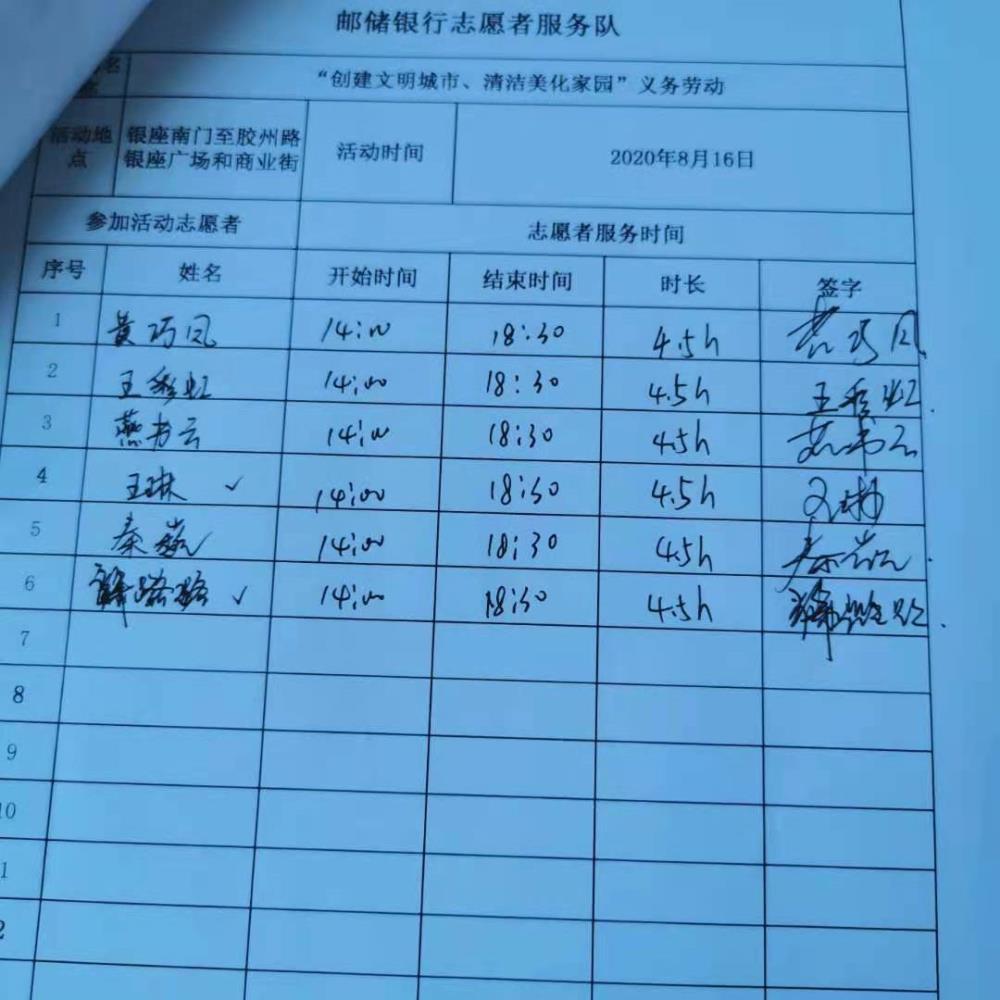 邮储银行志愿者服务队
名 “创建文明城市、清洁美化家园”义务劳动
活动地点 银座南门至胶州路银座广场和商业街 活动时间 2020年8月16日
参加活动志愿者 志愿者服务时间
序号 姓名 开始时间 结束时间 时长 签字
1 黄巧凤 14:00 18:30 4.5h 黄巧凤
2 王秀虹 14:00 18:30 4.5h 王秀虹
3 燕书云 14:00 18:30 4.5h 燕书云
4 王琳 ✓ 14:00 18:30 4.5h 王琳
5 秦 14:00 18:30 4.5h 秦
6 路路 ✓ 14:00 18:30 4.5h
7
8
9
10
1
2